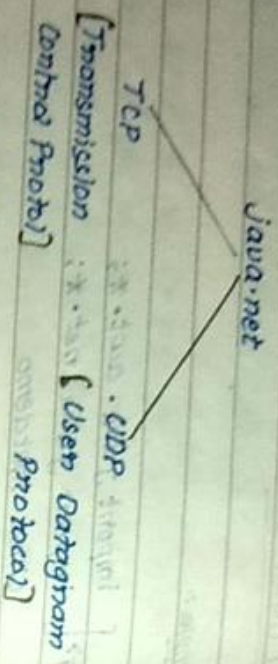 java.net
TCP
[Transmission
Control Prototol]
UDP
[User Datagram
Protocol]